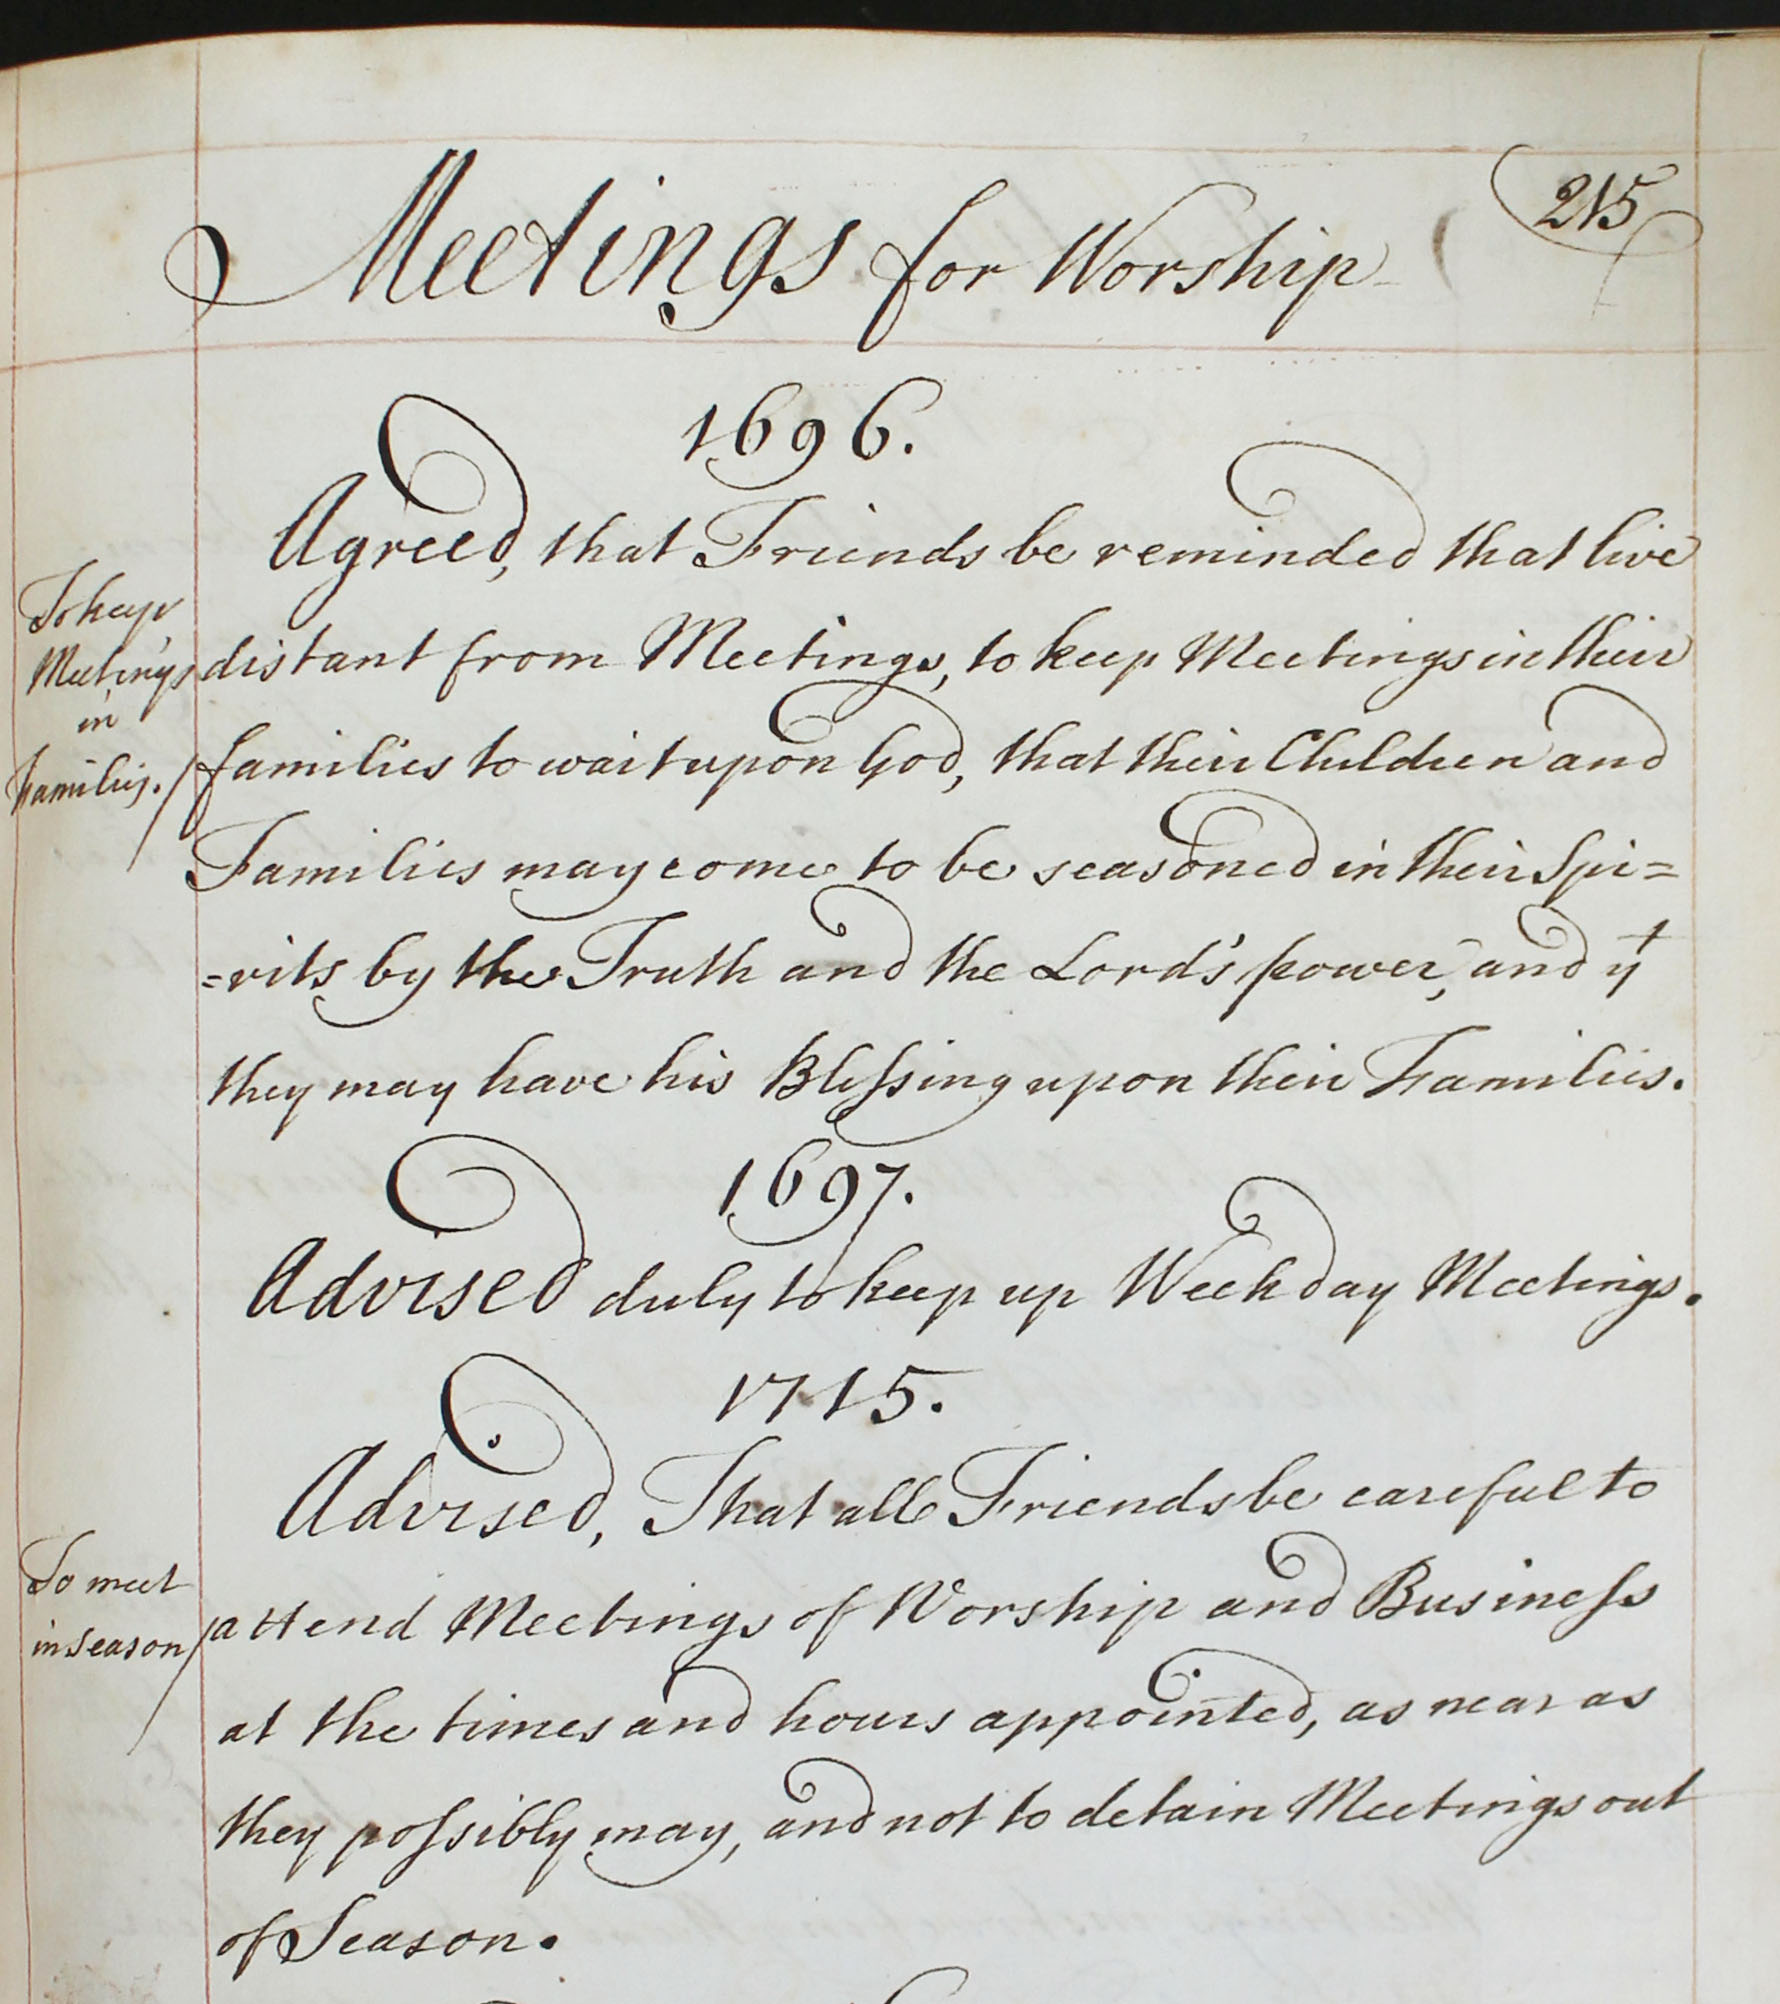 Meetings for Worship
215
1696.
Agreed, that Friends be reminded that live
To keep
Meetings
in
Families.
distant from Meetings, to keep Meetings in their
families to wait upon God, that their Children and
Families may come to be seasoned in their Spi=
=rits by the Truth and the Lord's power, and yt
they may have his Blessing upon their Families.
1697.
Advised duly to keep up Week day Meetings.
1715.
Advised, That all Friends be careful to
To meet
in Season
attend Meetings of Worship and Business
at the times and hours appointed, as near as
they possibly may, and not to detain Meetings out
of Season.